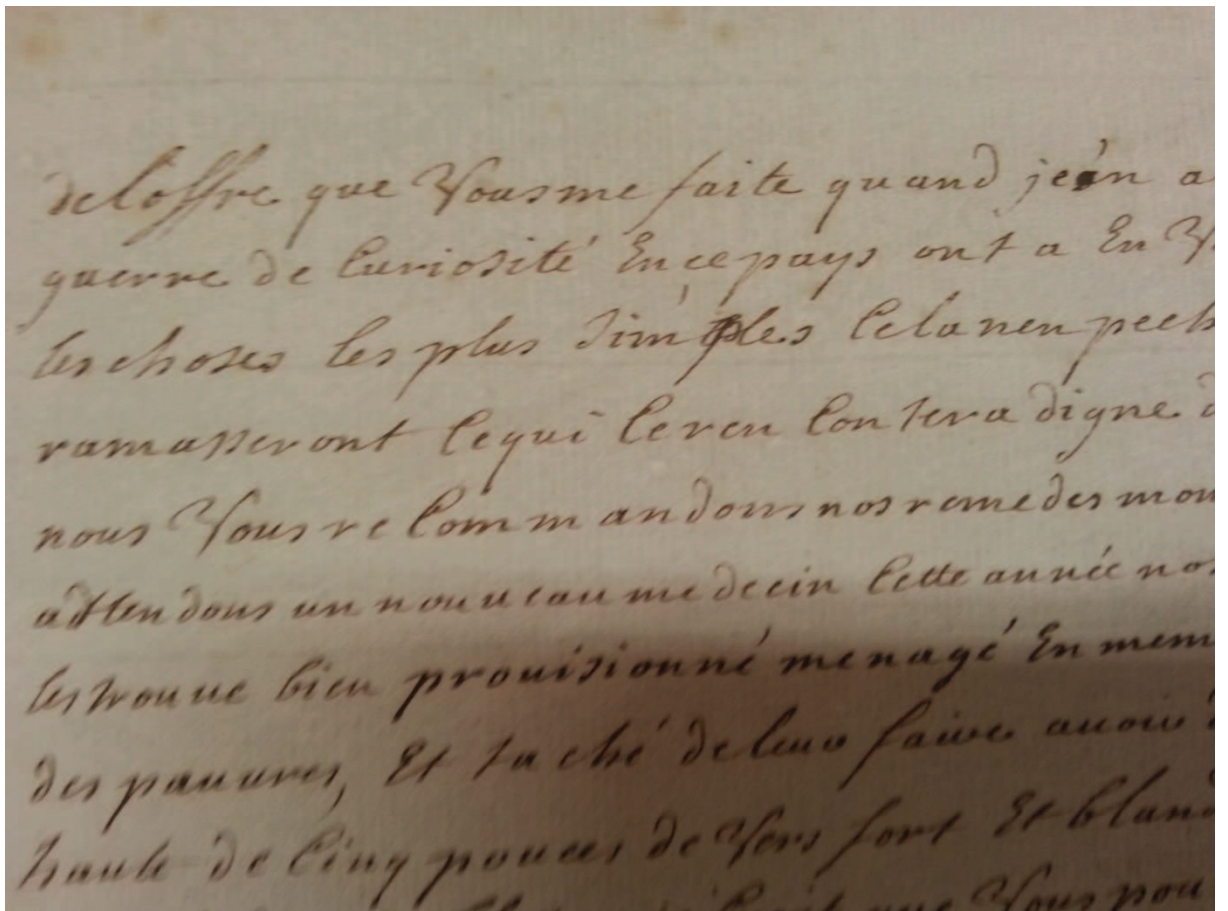 de loffre que Vous me faite quand jeán a
guerre de Curiosité En ce pays ont a En V
les choses les plus Simples Cela nen pech
ramasseront Ce qui Ce ren Contera digne d
nous Vous re Commandons nos remedes mon
attendons un nouueau medecin Cette année nos
les trouue bien prouisionné menagé En mem
des pauures, Et taché de leur faire auoir d
haute de Cinq pouces de Vers fort Et bland
que Vous pou